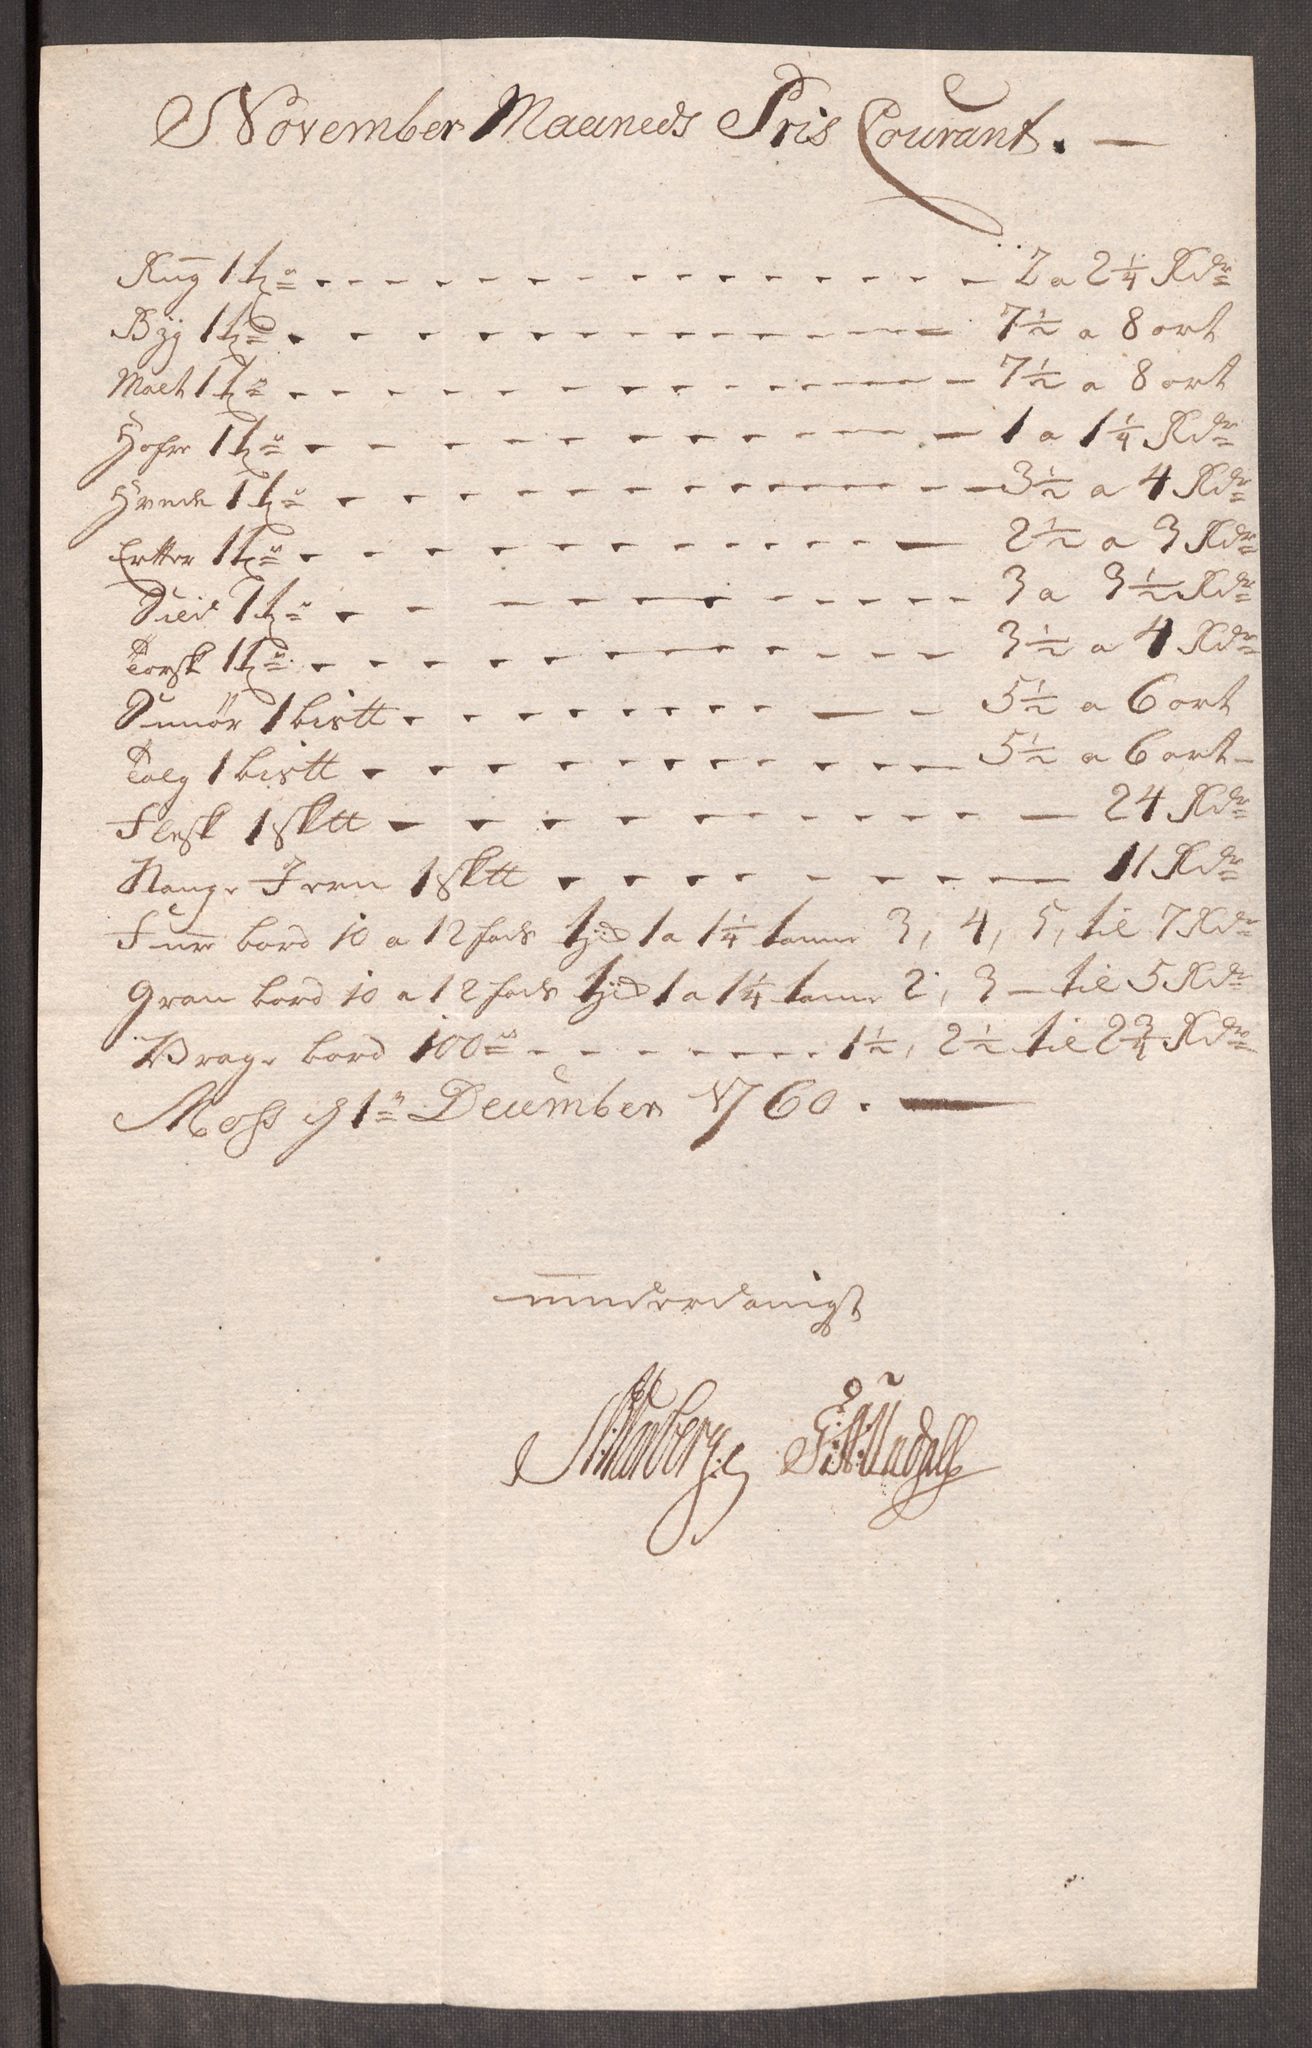 November Maaneds Pris Courant. —
Rug 1 tꝫ - - - 2 a 2 1/4 Rdr
Byg 1 tꝫ - - - 7 1/2 a 8 ort
Malt 1 tꝫ - - - 7 1/2 a 8 ort
Hafre 1 tꝫ - - - 1 a 1 1/4 Rdr
Hvede 1 tꝫ - - - 3 1/2 a 4 Rdr
Ertter 1 tꝫ - - - 2 1/2 a 3 Rdr
Sild 1 tꝫ - - - 3 a 3 1/2 Rdr
Torsk 1 tꝫ - - - 3 1/2 a 4 Rdr
Smiör 1 bistt - - - 5 1/2 a 6 ort
Talg 1 bistt - - - 5 1/2 a 6 ort -
Flesk 1 sktt - - - 24 Rdr
Stange Jern 1 sktt - - - 11 Rdr
Furr bord 10 a 12 fods 1 a 1 1/4 tomme 3, 4, 5, til 7 Rdr
Gran bord 10 a 12 fods 1 a 1 1/4 tomme 2, 3 - til 5 Rdr
Vrage bord 100 - - - 1 1/2, 2 1/2 til 2 3/4 Rdr
Moss d 1 December 1760. —
underdanigst